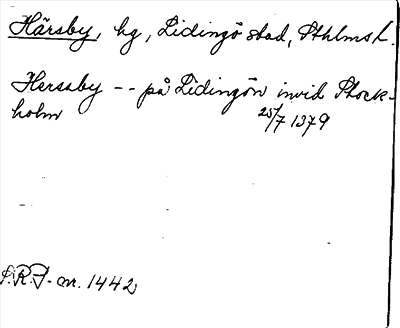 Härsby, hg, Lidingö stad, Sthlms l.
Hersaby -- på Lidingön invid Stock-
holm 25/7 1379
S.R.P. nr. 1442